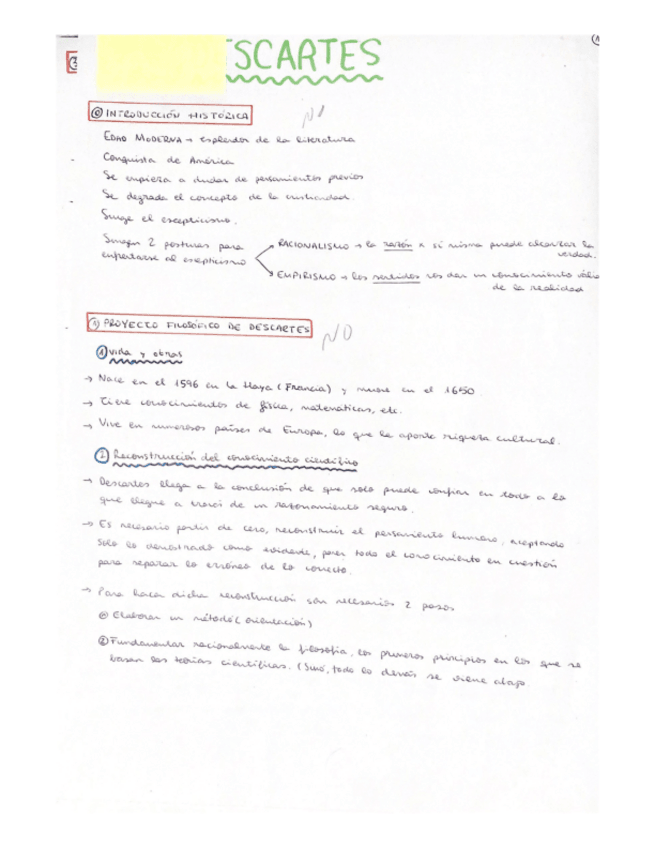 ESCARTES
⓪ INTRODUCCIÓN HISTÓRICA NO
EDAD MODERNA → esplendor de la literatura
Conquista de América
Se empieza a dudar de pensamientos previos
Se degrada el concepto de la cristiandad.
Surge el escepticismo.
Surgen 2 posturas para
enfrentarse al escepticismo
RACIONALISMO → la razón x sí misma puede alcanzar la
verdad.
EMPIRISMO → los sentidos nos dan un conocimiento válido
de la realidad
1) PROYECTO FILOSÓFICO DE DESCARTES NO
① Vida y obras
→ Nace en el 1596 en La Haya (Francia) y muere en el 1650.
→ Tiene conocimientos de física, matemáticas, etc.
→ Vive en numerosos países de Europa, lo que le aporta riqueza cultural.
② Reconstrucción del conocimiento científico
→ Descartes llega a la conclusión de que solo puede confiar en todo a lo
que llegue a través de un razonamiento seguro.
→ Es necesario partir de cero, reconstruir el pensamiento humano, aceptando
solo lo demostrado como evidente, poner todo el conocimiento en cuestión
para separar lo erróneo de lo correcto.
→ Para hacer dicha reconstrucción son necesarios 2 pasos
Elaborar un método (orientación)
② Fundamentar racionalmente la filosofía, los primeros principios en los que se
basan las teorías científicas. (Sino, todo lo demás se viene abajo.